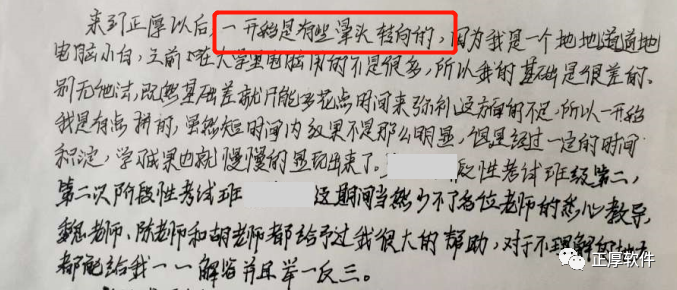 来到正厚以后,一开始是有些晕头转向的,因为我是一个地地道道地
电脑小白,之前在大学里电脑用的不是很多,所以我的基础是很差的。
别无他法,既然基础差就只能多花点时间来弥补这方面的不足,所以一开始
我是有点拼的,虽然短时间内效果不是那么明显,但是经过一定的时间
积淀,学习成果也就慢慢的显现出来了。 段性考试班级第二,
第二次阶段性考试班 这期间当然少不了各位老师的悉心教导,
魏老师,陈老师和胡老师都给予过我很大的帮助,对于不理解的地方
都能给我一一解答并且举一反三。
正厚软件